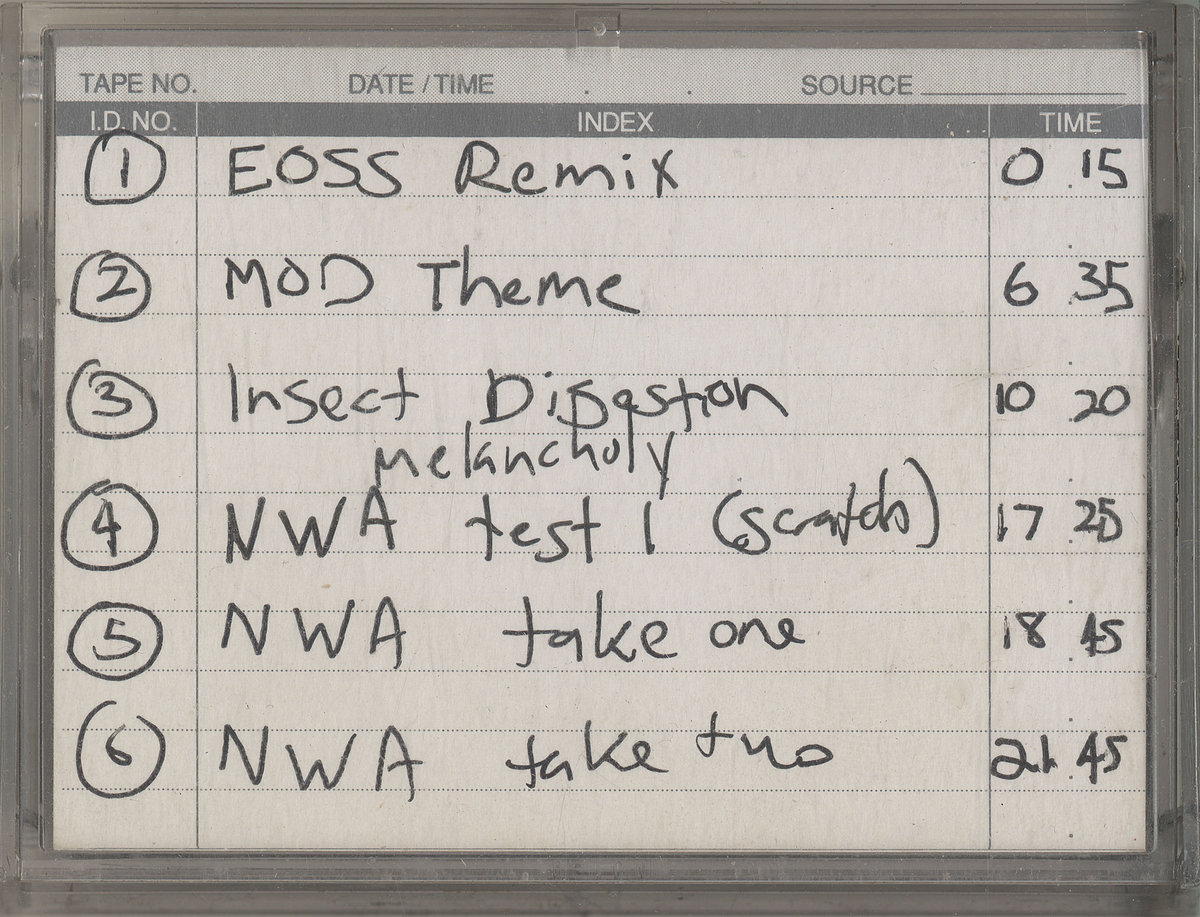 TAPE NO. DATE / TIME . . SOURCE
I.D. NO. INDEX TIME
1 EOSS Remix 0 . 15
2 MOD Theme 6 . 35
3 Insect Digestion 10 . 20
melancholy
4 NWA test 1 (scratch) 17 . 25
5 NWA take one 18 . 45
6 NWA take two 21 . 45